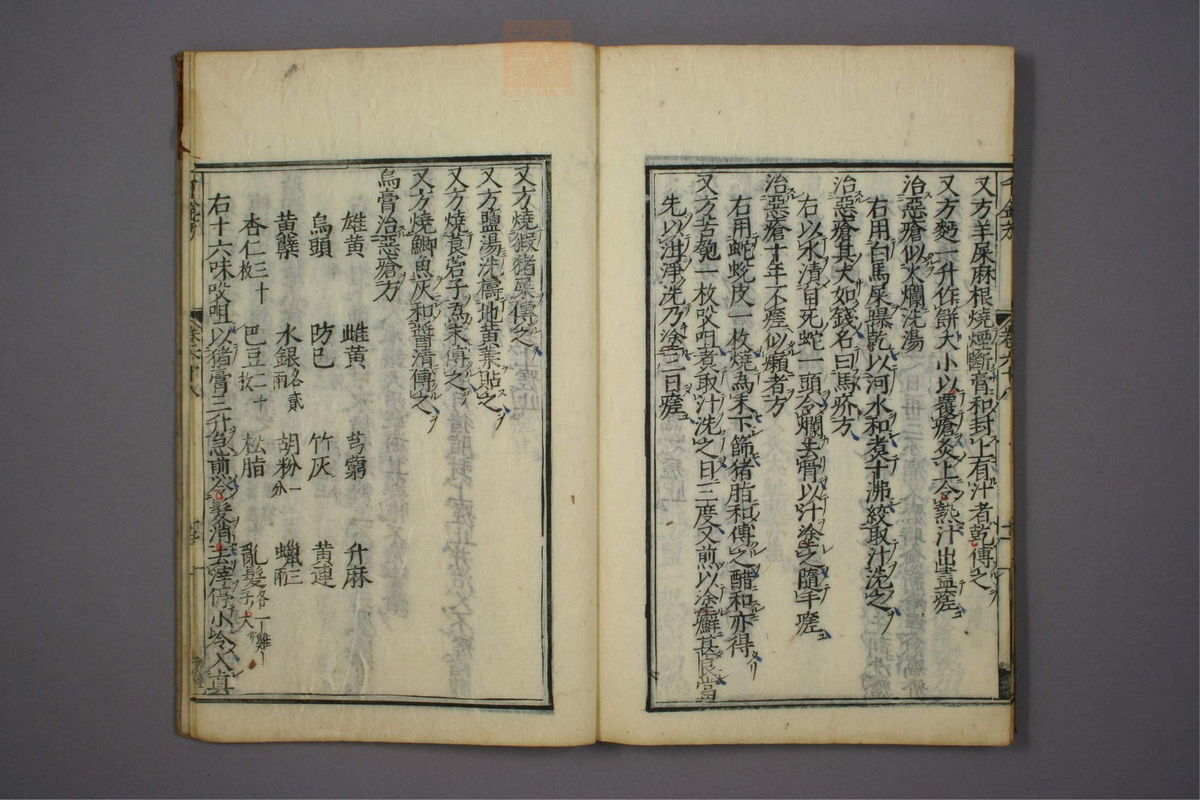 又方羊屎麻根燒煙斷膏和封上有汁者乾傅之
又方麪一升作餅大小以覆瘡灸上令熱汁出盡瘥
治惡瘡似火爛洗湯
右用白馬屎曝乾以河水和煮十沸絞取汁洗之
治惡瘡其大如錢名曰馬疥方
右以水漬自死蛇一頭令爛去骨以汁塗之隨手瘥
治惡瘡十年不瘥似癩者方
右用蛇蛻皮一枚燒為末下篩猪脂和傅之醋和亦得
又方苦瓠一枚㕮咀煮取汁洗之日三度又煎以塗癬甚良當
先以泔淨洗乃塗三日瘥
又方燒豭猪屎傅之
又方鹽湯洗擣地黃葉貼之
又方燒莨菪子為末傅之
又方燒鯽魚灰和醬清傅之
烏膏治惡瘡方
雄黃 雌黃 芎藭 升麻
烏頭 防己 竹灰 黃連
黃蘗 水銀各貳兩 胡粉一分 蠟三兩
杏仁三十枚 巴豆二十枚 松脂 亂髮各一雞子大
右十六味㕮咀以猪膏三升急煎令髮消去滓停小冷入真